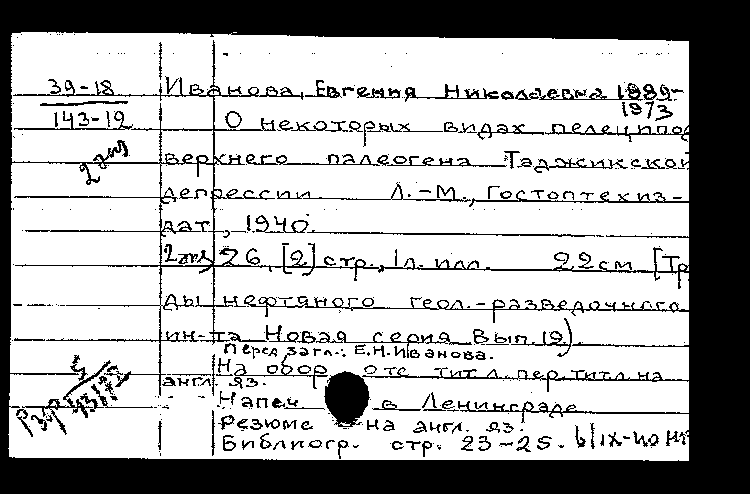 39-18 Иванова, Евгения Николаевна 1889-
1973
143-19 О некоторых видах пелеципод
2 экз верхнего палеогена Таджикской
депрессии Л.-М., Гостоптехиз-
дат, 1940.
2 экз 26, [2] стр., 1 л. илл. 22 см [Тр
ды нефтяного геол.-разведочного
ин-та Новая серия Вып. 19).
Перед загл.: Е.Н. Иванова.
На обор отс тит л. пер. титл на
англ яз.
Напеч в Ленинграде
Резюме на англ. яз.
Библиогр. стр. 23-25.